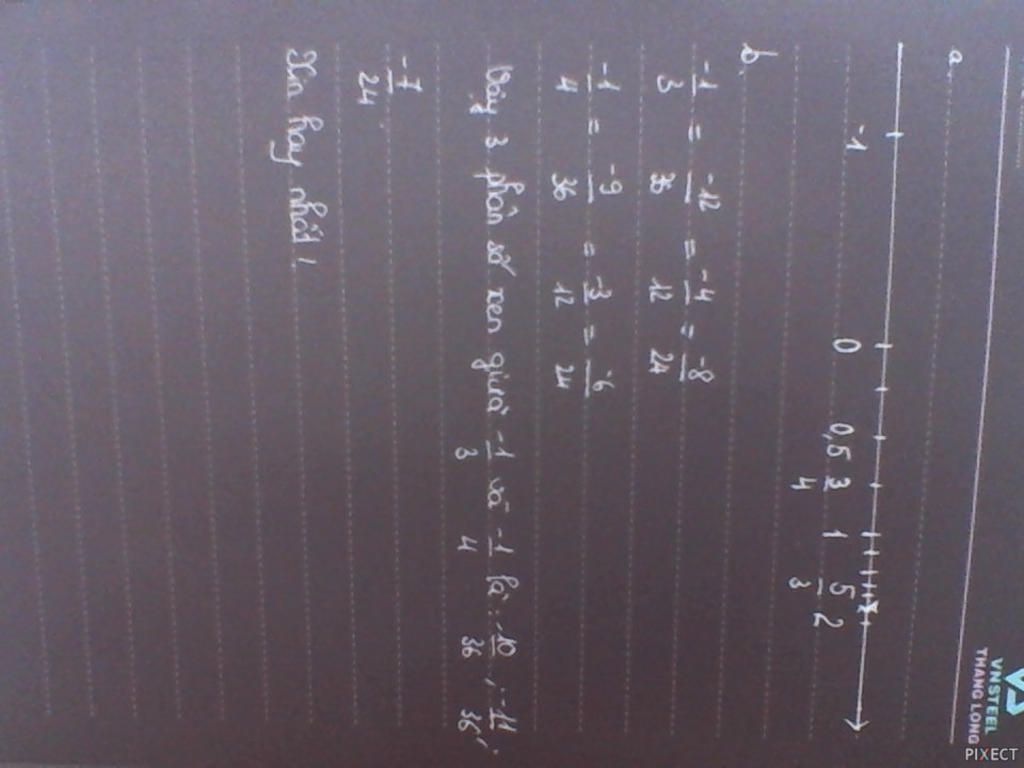 VNSTEEL
THANG LONG
a.
-1 0 0,5 3/4 1 5/3 2
b.
-1/3 = -12/36 = -4/12 = -8/24
-1/4 = -9/36 = -3/12 = -6/24
Vậy 3 phân số xen giữa -1/3 và -1/4 là: -10/36, -11/36,
-7/24.
Xin hay nhất!
PIXECT